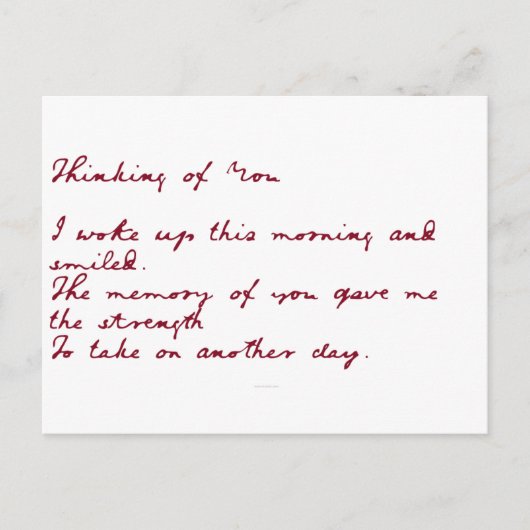 Thinking of You
I woke up this morning and
smiled.
The memory of you gave me
the strength
To take on another day.